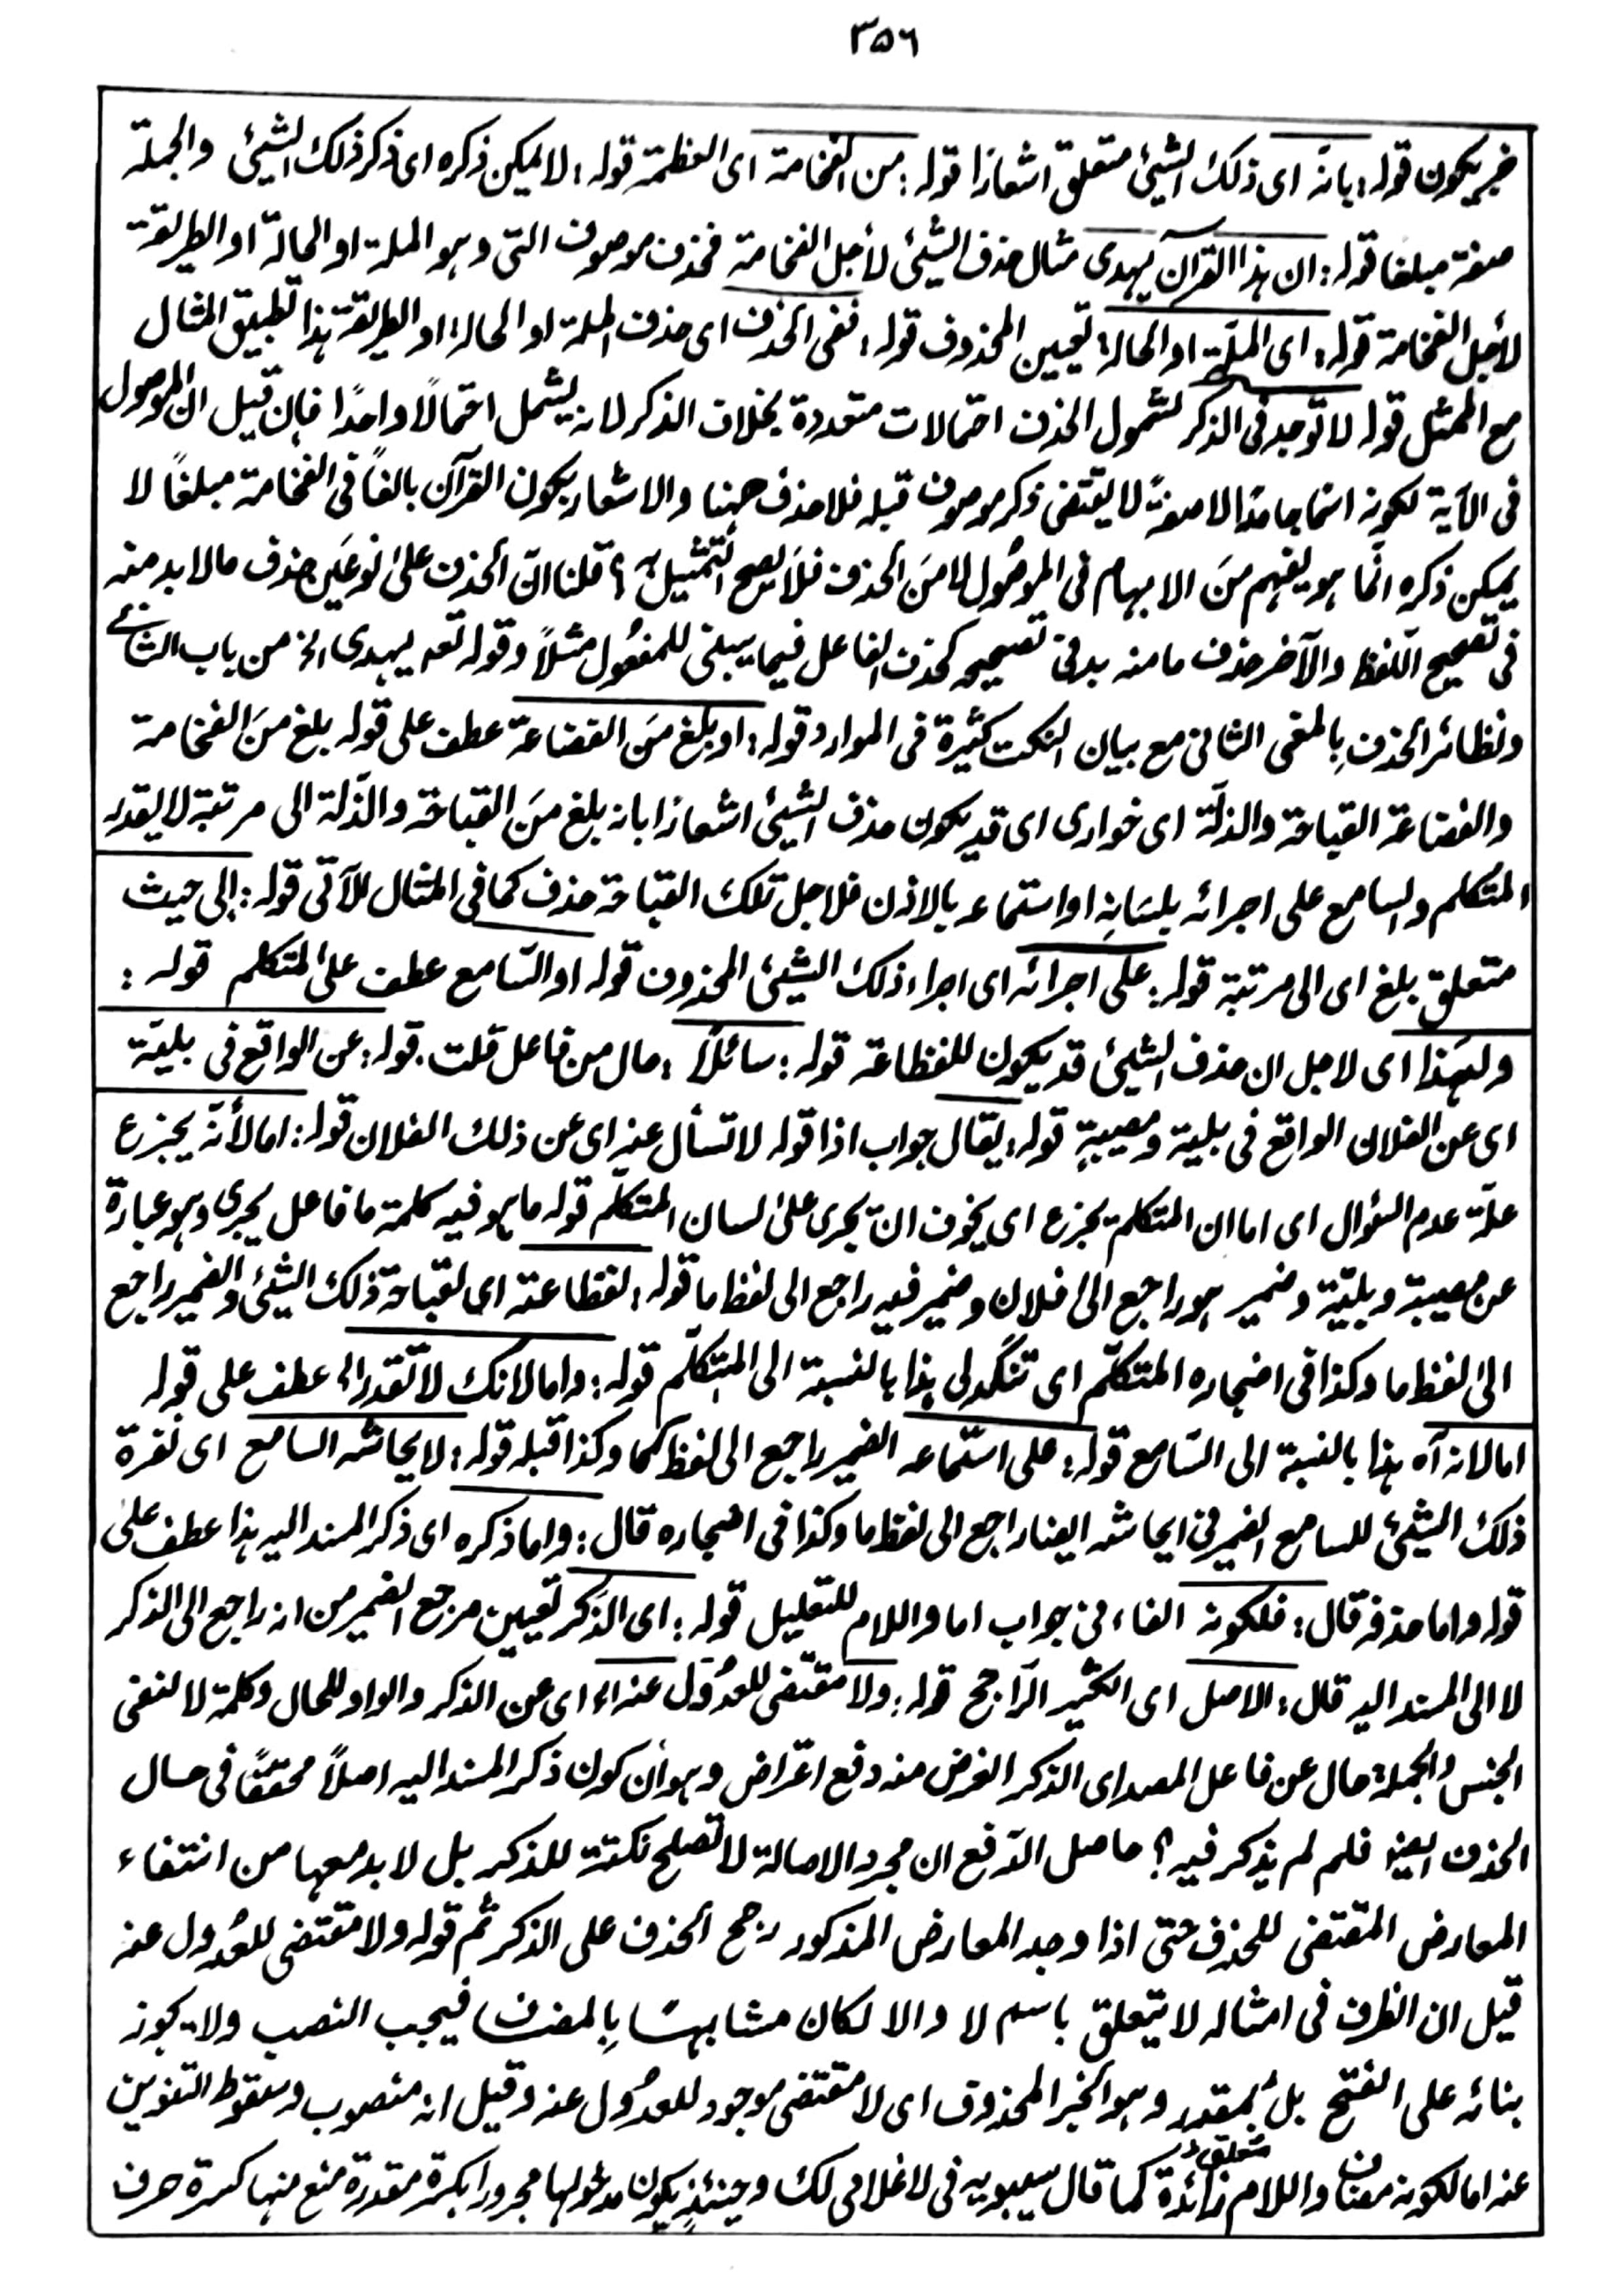 ٣٥٦
خبر يكون قوله: بانه اى ذلك الشيئ متعلق اشعارًا قوله: من الفخامة اى العظمة قوله: لا يمكن ذكره اى ذكر ذلك الشيئ والجملة
صفة مبلغا قوله: ان هذا القرآن يهدى مثال حذف الشيئ لأجل الفخامة فحذف موصوف التى وهو الملة او الحالة او الطريقة
لأجل الفخامة قوله: اى الملّة او الحالة تعيين المحذوف قوله: ففى الحذف اى حذف الملة او الحالة او الطريقة هذا تطبيق المثال
مع الممثل قوله لا توجد فى الذكر لشمول الحذف احتمالات متعددة بخلاف الذكر لانه يشمل احتمالًا واحدًا فإن قيل ان الموصول
فى الآية لكونه اسمًا جامدًا لا صفةً لا يقتضى ذكر موصوف قبله فلا حذف ههنا والاشعار بكون القرآن بالغًا فى الفخامة مبلغًا لا
يمكن ذكره انّما هو يفهم مِنَ الابهام فى الموصُول لا مِنَ الحذف فَلَا يصح التمثيل به؟ قلنا انّ الحذف علىٰ نوعَين حذف مالا بد منه
فى تصحيح اللّفظ والآخر حذف ما منه بد فى تصحيحه كحذف الفاعل فيما يبنى للمفعُول مثلًا وقوله تعه يهدى الخ من باب الثانے
ونظائر الحذفِ بِالمعنى الثانى مع بيان النكت كثيرة فى الموارد قوله: او بلغ مِنَ الفضاعة عطف على قوله بلغ مِنَ الفخامة
والفضاعة القباحة والذلّة اى خوارى اى قد يكون حذف الشيئ اشعارًا بانه بلغ مِنَ القباحة والذّلة الى مرتبة لا يقدر
المتكلم والسامع على اجرائه بلسَانِه او استماعه بالاذن فلاجل تلك القباحة حذف كما فى المثال للآتى قوله: إلى حيث
متعلق بلغ اى الى مرتبة قوله: على اجرائه اى اجراء ذلك الشيئ المحذوف قوله او السّامع عطف علىٰ المتكلم قوله:
ولهٰذا اى لاجل ان حذف الشيئ قد يكون للفظاعة قوله: سائلًا: حال من فاعل قلت قوله: عن الواقع فى بليّة
اى عن الفلان الواقع فى بلية ومصيبةٍ قوله: يقال جواب اذا قوله لا تسأل عنه اى عن ذلك الفلان قوله: اما لأنّه يجزع
علّة عدم السئوال اى اما ان المتكلمة يجزع اى يخوف ان يجرى علىٰ لسان المتكلّم قوله ما هو فيه كلمة ما فاعل يجرى وهو عبارة
عن مصيبة وبليّة وضمير هو راجع الىٰ فلان وضمير فيه راجع الى لفظ ما قوله: لفظاعته اى لقباحة ذلك الشيئ والضمير راجع
الىٰ لفظ ما وكذا فى اضجاره المتكلّم اى تنگدلى هٰذا بالنسبة الى المتكلّم قوله: واما لانك لا تقدر الخ عطف على قوله
اما لانه آه هذا بالنسبة الى السّامع قوله: على استماعه الضمير راجع الى لفظ كما وكذا قبله قوله: لايحاشه السامع اى نفرة
ذلك الشيئ للسامع الضمير فى ايحاشه ايضا راجع الى لفظ ما وكذا فى اضجاره قال: واما ذكره اى ذكر المسند اليه هذا عطف على
قوله واما حذفه قال: فلكونه الفاء فى جواب اما واللام للتعليل قوله: اى الذّكر تعيين مرجع الضمير من انه راجع الى الذكر
لا الى المسند اليه قال: الاصل اى الكثير الرّاجح قوله: ولا مقتضى للعدُول عنه: اى عن الذكر والواو للحال وكلمة لا لنفى
الجنس والجملة حال عن فاعل المصدر اى الذكر الغرض منه دفع اعتراض وهو أن كون ذكر المسند اليه اصلًا محققًا فى حال
الحذف ايضا فلم لم يذكر فيه؟ حاصل الدّفع ان مجرد الاصالة لا تصلح نكتة للذكر بل لا بد معها من انتفاء
المعارض المقتضى للحذف حتى اذا وجد المعارض المذكور رجح الحذف على الذكر ثم قوله ولا مقتضى للعدُول عنه
قيل ان الظرف فى امثاله لا يتعلق باسم لا والا لكان مشابهًا بِالمضاف فيجب النصب ولا يجوز
بنائه على الفتح بل بمقدر وهو الخبر المحذوف اى لا مقتضى موجود للعدُول عنه وقيل انه منصوب وسقوط التنوين
عنه اما لكونه مضافا واللام زائدة كما قال سيبويه فى لا غلامى لك وحينئذٍ يكون مدخولها مجرورا بكسرة مقدرة منع منها كسرة حرف
متعلق